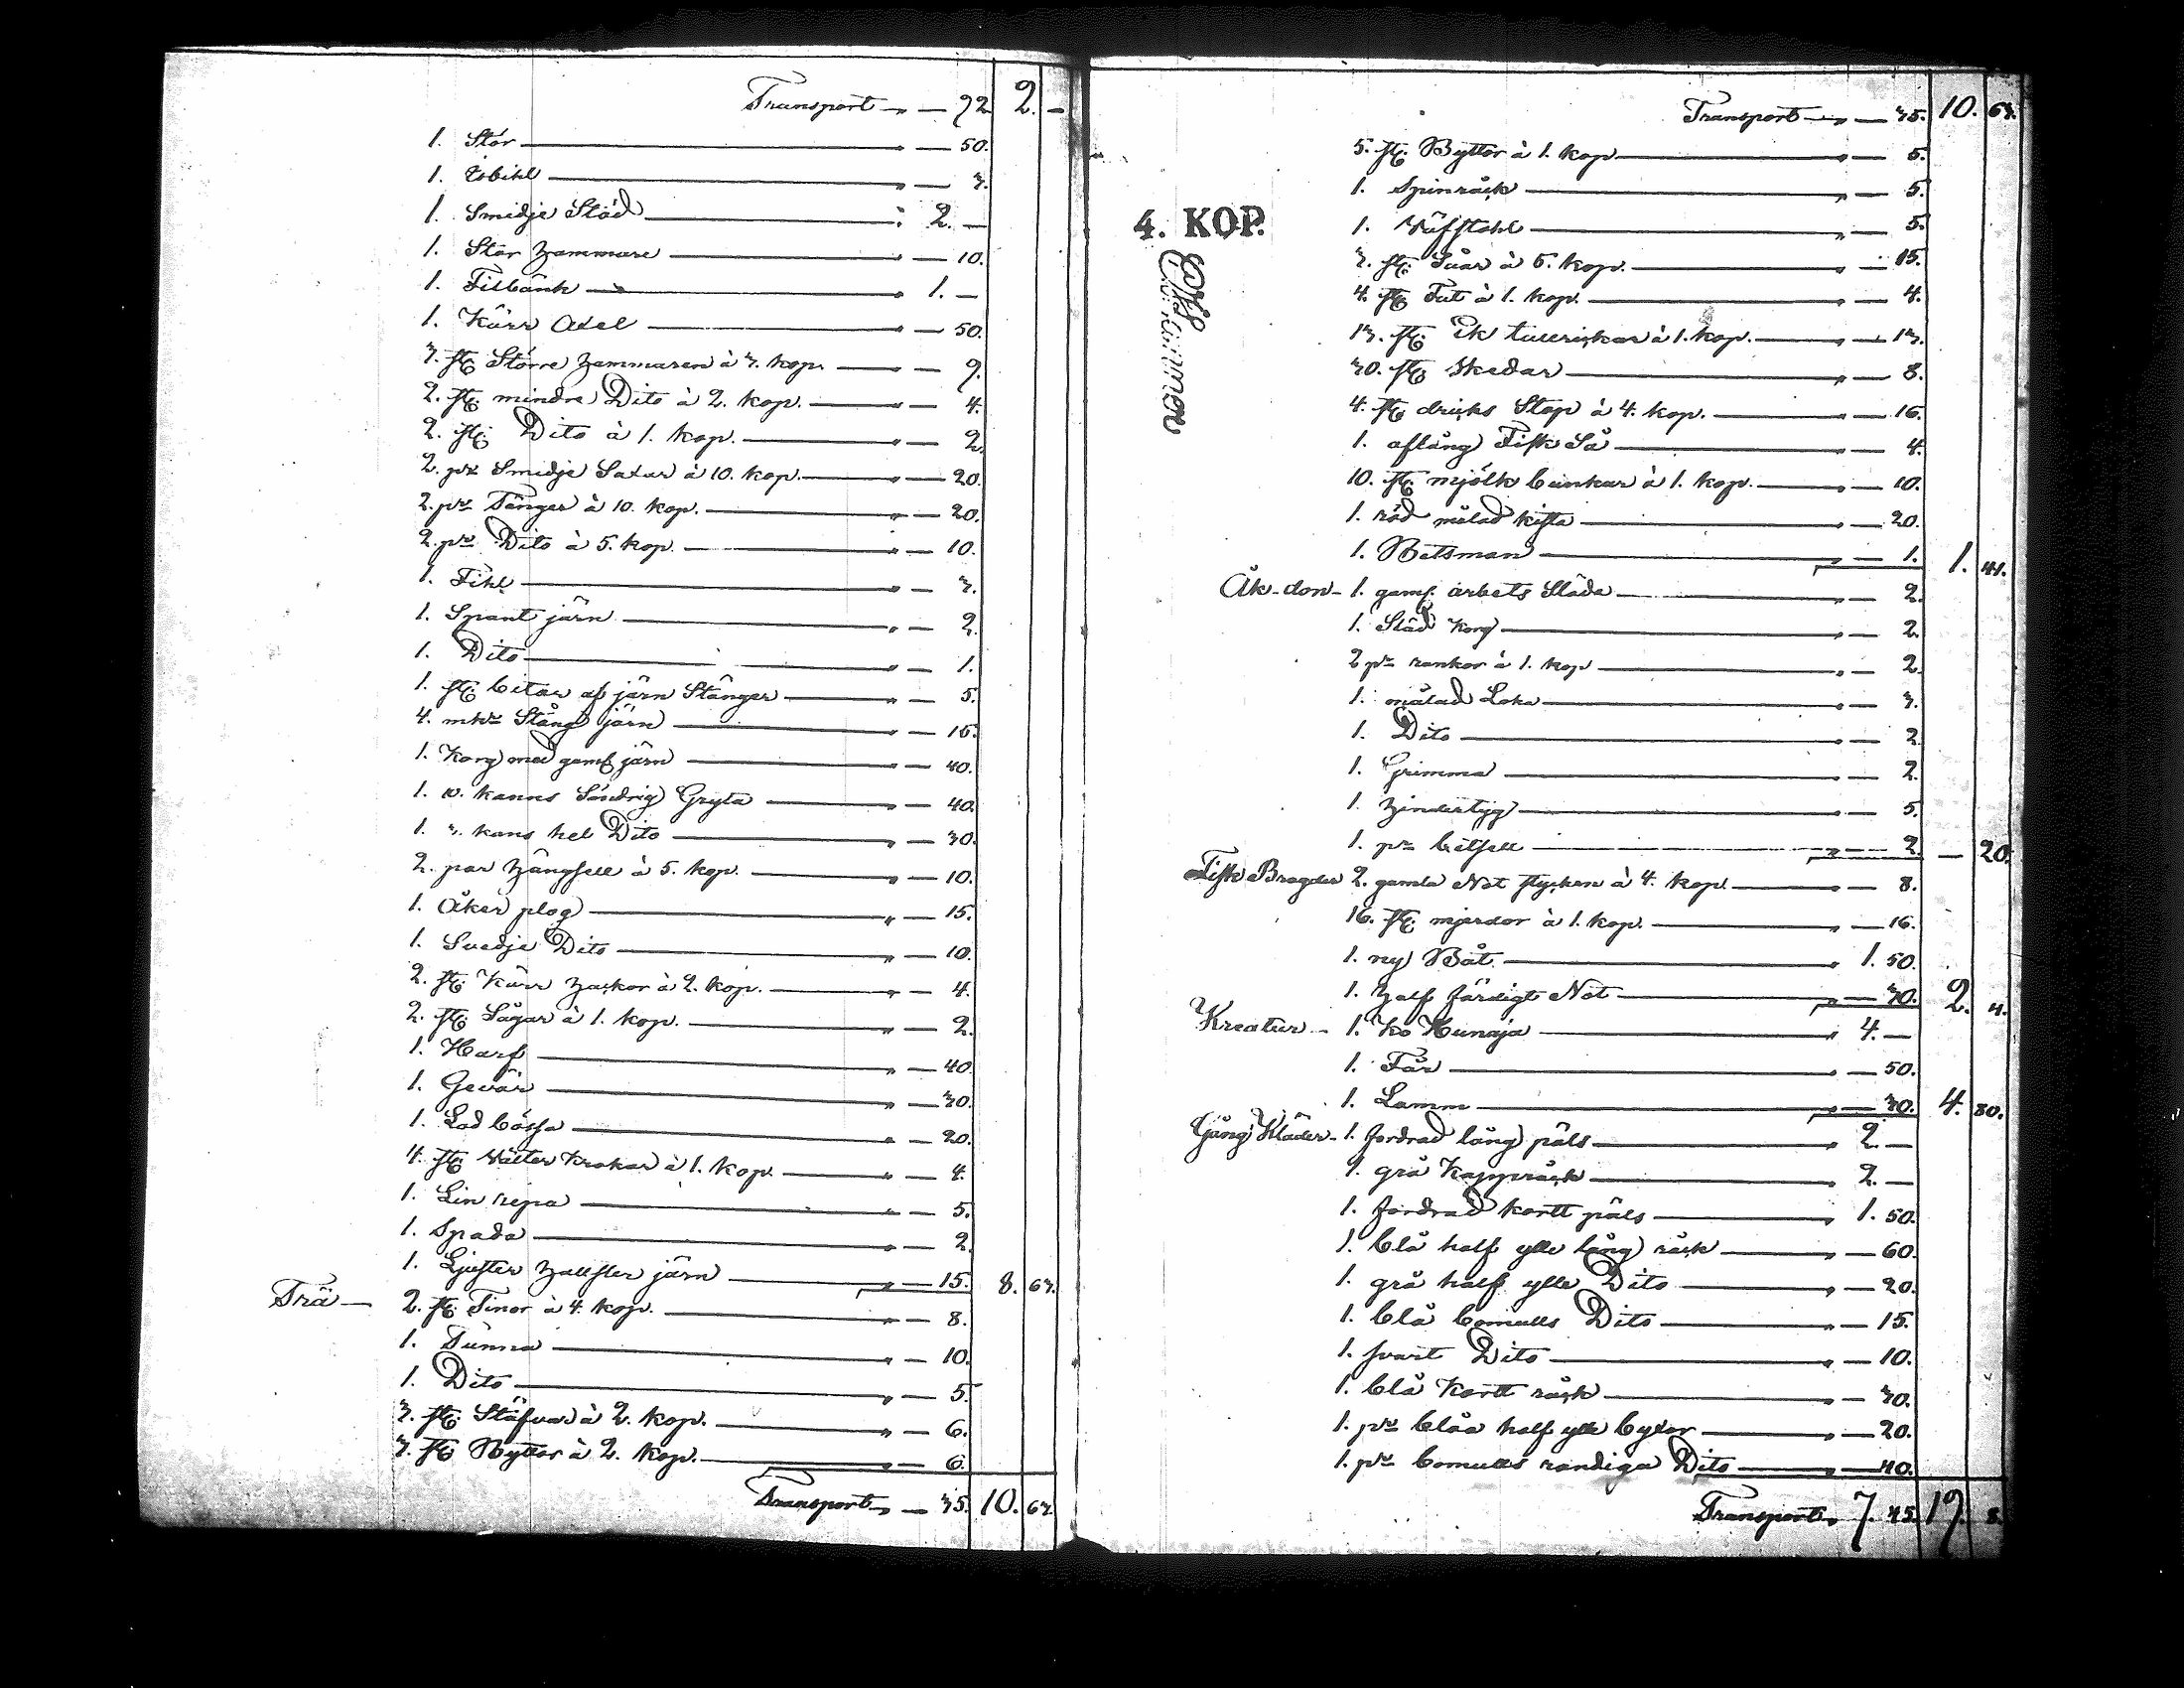 Transport „ — 92. 2. —
1. Stör „ — 50.
1. Isbihl „ — 3.
1. Smidje Städ „ 2. —
1. Stor Hammare „ — 10.
1. Filbänk „ 1. —
1. Kärr Axel „ — 50.
3. st. Större Hammaren à 3. kop. — 9.
2. st. mindre Dito à 2. kop. „ — 4.
2. st. Dito à 1. kop. „ — 2.
2. pr Smidje Saxar à 10. kop. „ — 20.
2. pr Tänger à 10. kop. „ — 20.
2. pr Dito à 5. kop. „ — 10.
1. Fihl „ — 3.
1. Spant järn „ — 2.
1. Dito „ — 1.
1. st. bitar af järn Stänger „ — 5.
4. mkr Stång järn „ — 16.
1. Korg med gamt järn „ — 40.
1. 10. kanns Söndrig Gryta „ — 40.
1. 3. kans hel Dito „ — 30.
2. par Hängsell à 5. kop. „ — 10.
1. Åker plog „ — 15.
1. Svedje Dito „ — 10.
2. st. Kärr Hackor à 2. kop. „ — 4.
2. st. Sågar à 1. kop. „ — 2.
1. Harf „ — 40.
1. Gevär „ — 30.
1. Lod bössa „ — 20.
4. st. Krokar à 1. kop. „ — 4.
1. Lin repa „ — 5.
1. Spada „ — 2.
1. Ljuster Hallster järn „ — 15. 8. 63.
Trä — 2. st. Tinor à 4. kop. „ — 8.
1. Tunna „ — 10.
1. Dito „ — 5.
3. st. Stäfvar à 2. kop. „ — 6.
3. st. Byttor à 2. kop. „ — 6.
Transport „ — 35. 10. 63.
Transport „ — 35. 10. 63.
5. st. Byttor à 1. kop „ — 5.
1. Spinråck „ — 5.
1. Väfstohl „ — 5.
3. st. Såar à 5. kop. „ — 15.
4. st. Fat à 1. kop. „ — 4.
13. st. tallrickar à 1. kop. „ — 13.
30. st. Skedar „ — 8.
4. st. dricks Stop à 4. kop. „ — 16.
1. aflång Fisk Så „ — 4.
10. st. mjölk bunkar à 1. kop. „ — 10.
1. röd målad kista „ — 20.
1. Betsman „ — 1. 1. 41.
Åk-don — 1. gam. arbets Släda „ — 2.
1. Släd Korg „ — 2.
2 pr rankor à 1. kop „ — 2.
1. målad Loka „ — 3.
1. Dito „ — 2.
1. Grimma „ — 2.
1. Hindertyg „ — 5.
1. pr betsell „ — 2. — 20.
Fisk Bragder 2. gamla Not stycken à 4. kop „ — 8.
16. st. mjerdor à 1. kop. „ — 16.
1. ny Båt „ 1. 50.
1. Half färdigt Not „ — 30. 2. 4.
Kreatur — 1. Ko Hunaja „ 4. —
1. Får „ — 50.
1. Lamm „ — 30. 4. 80.
Gång Kläder — 1. fordrad lång päls „ 2. —
1. grå Kappråck „ 2. —
1. fordrad kortt päls „ 1. 50.
1. blå half ylle lång råck „ — 60.
1. grå half ylle Dito „ — 20.
1. blå bomulls Dito „ — 15.
1. svart Dito „ — 10.
1. blå Kortt råck „ — 30.
1. pr blåa half ylle byxor „ — 20.
1. pr bomulls randiga Dito „ — 40.
Transport „ 7. 45. 19. 8.
4. KOP.